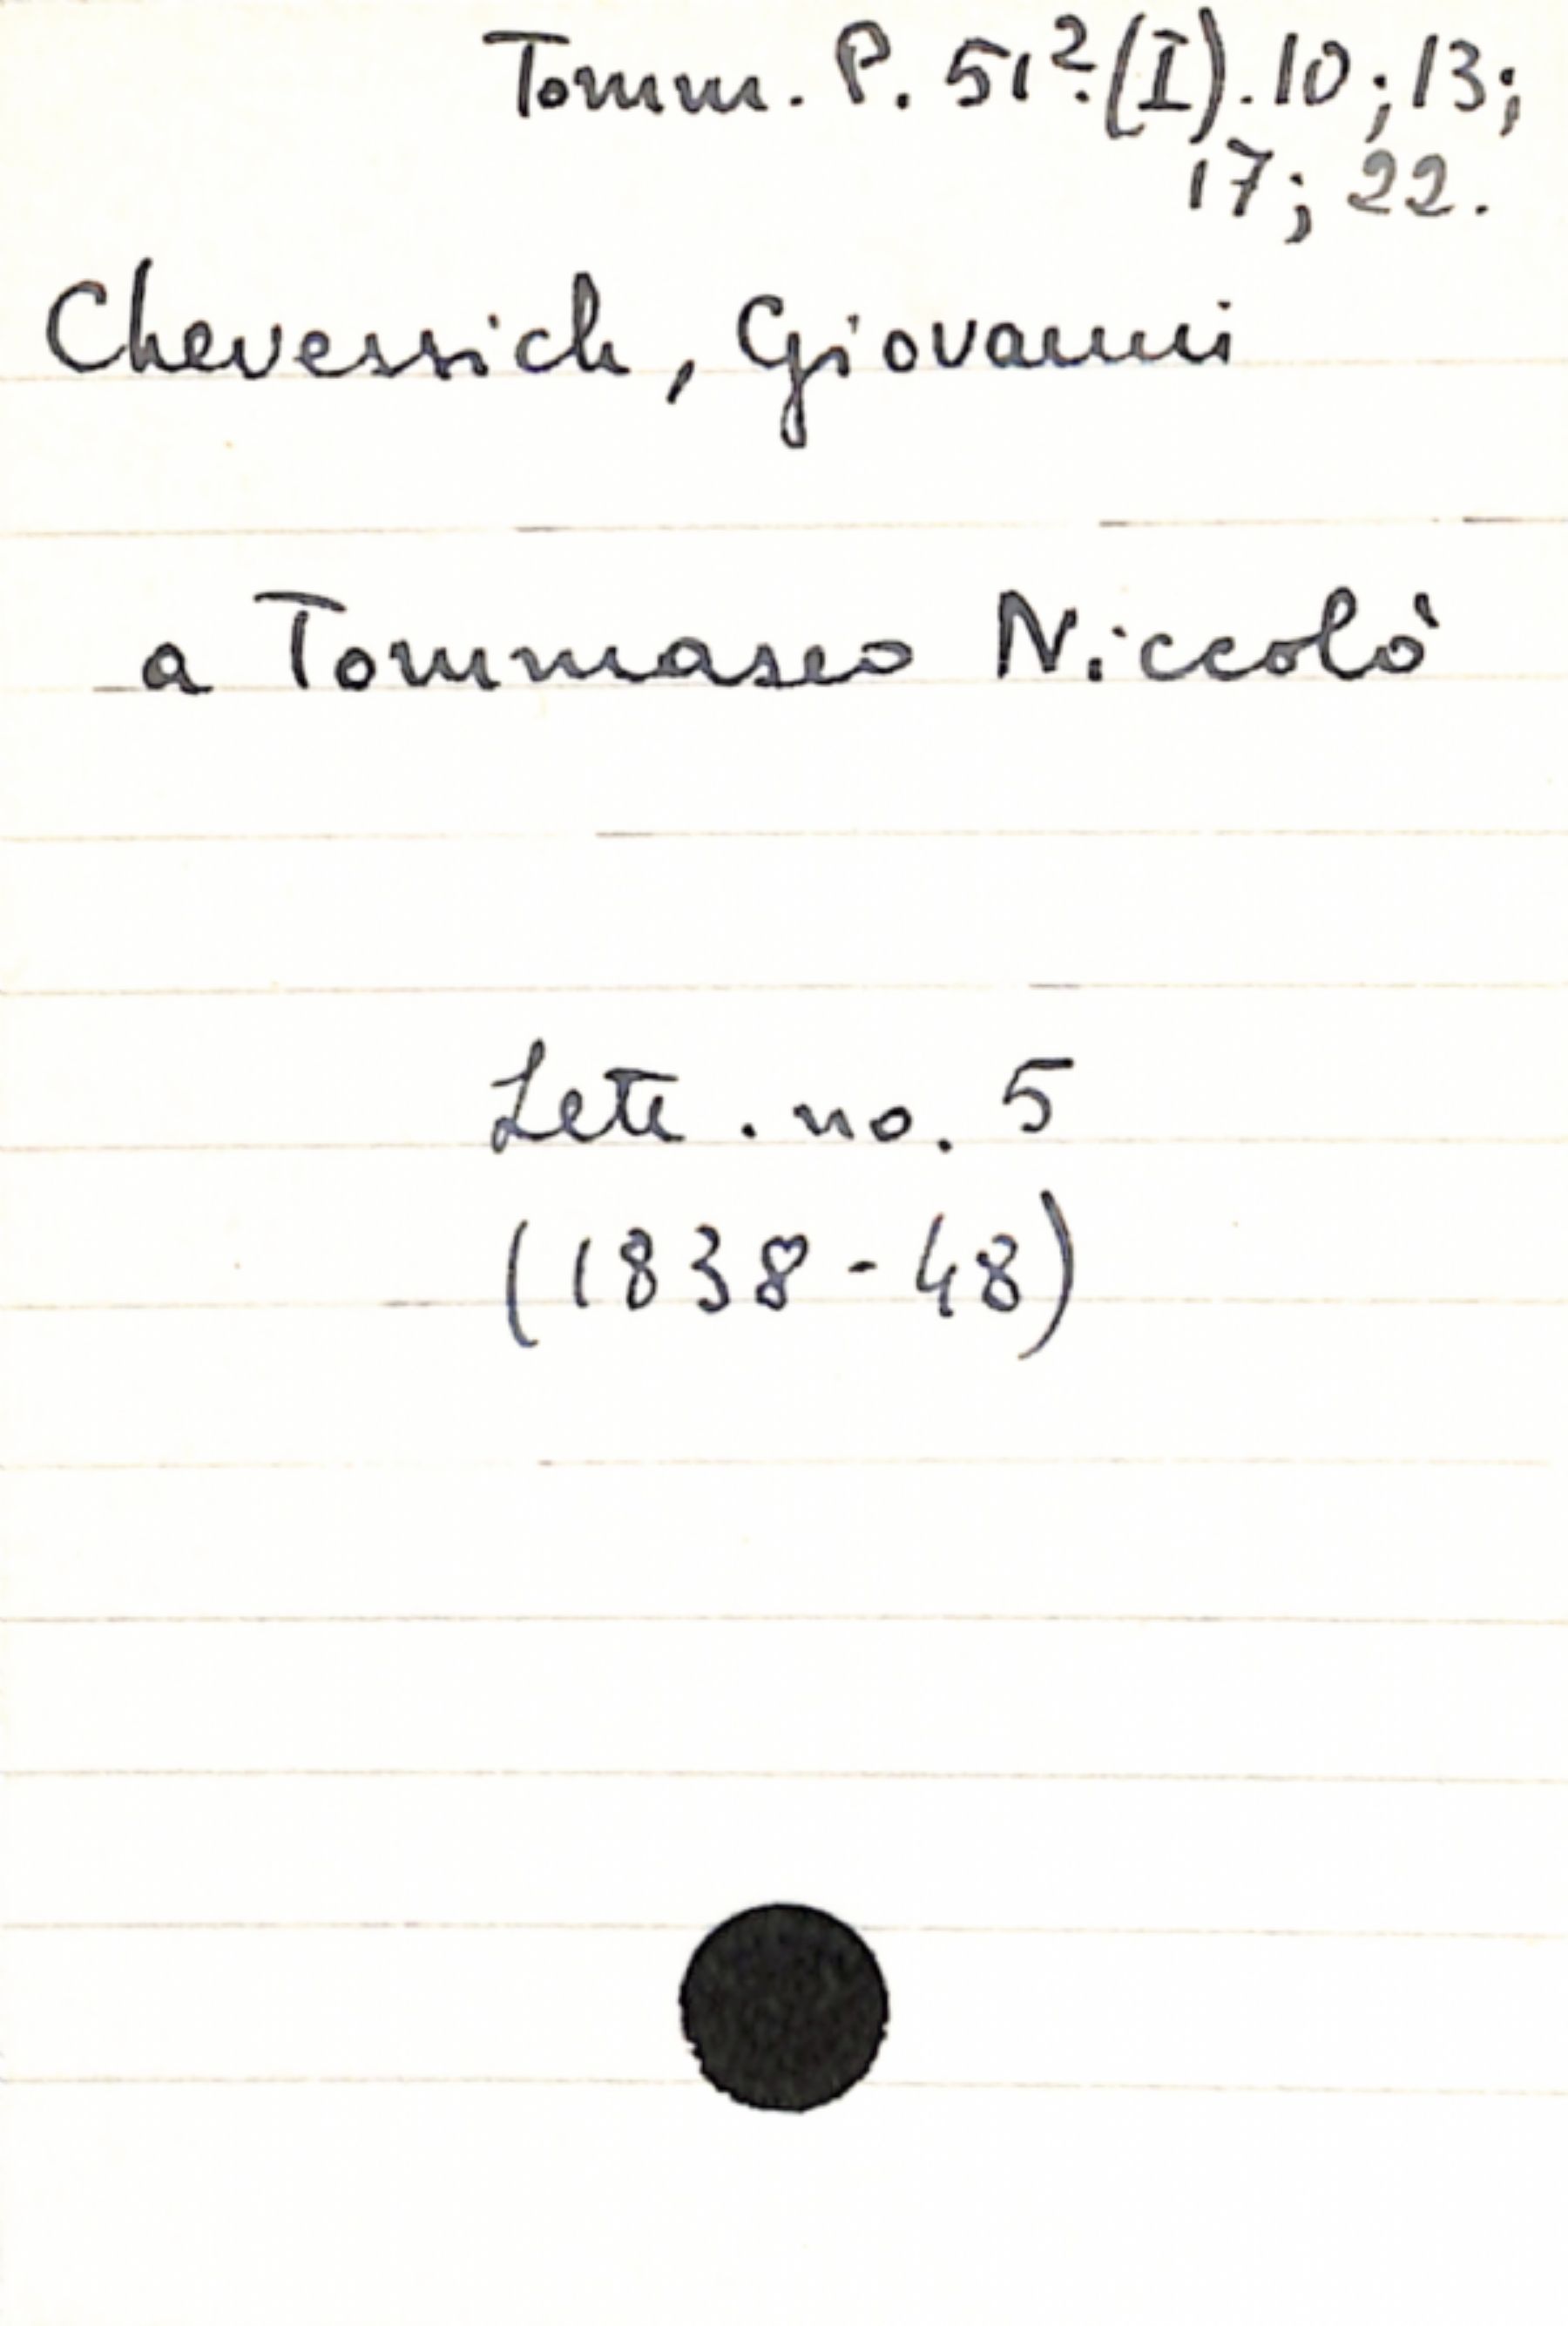 Tomm. P. 51².(I).10; 13;
17; 22.
Chevessich, Giovanni
a Tommaseo Niccolò
Lett. no. 5
(1838-48)